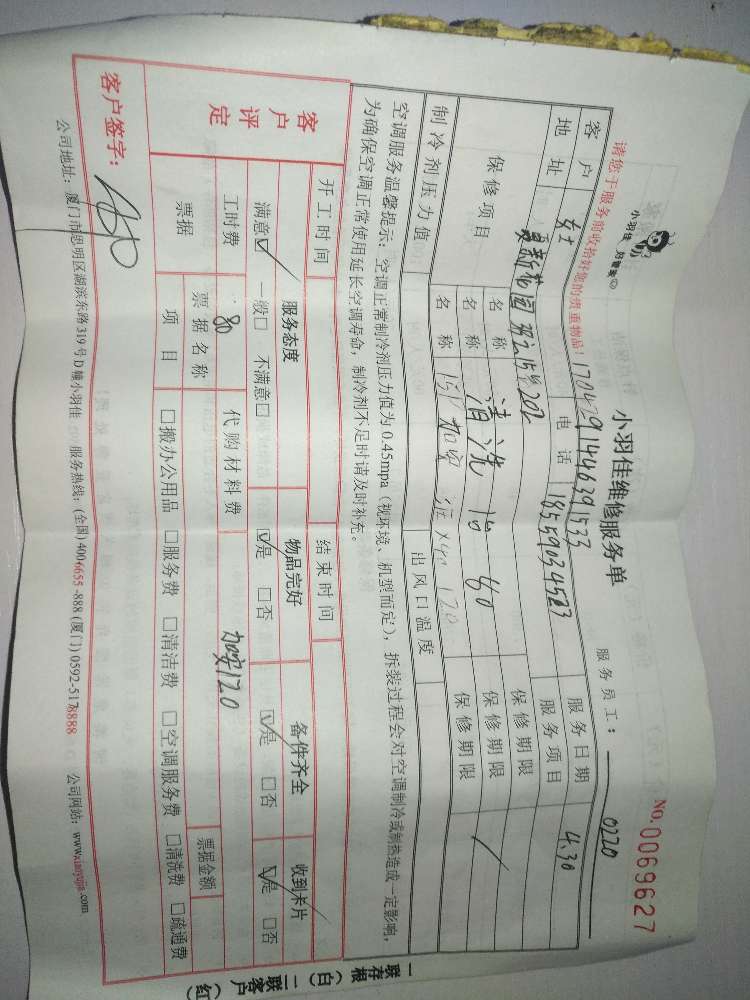 小羽佳 好管家
小羽佳维修服务单
NO.0069627
请您于服务前收拾好您的贵重物品！
17042911446391533
服务员工： 0220
客户 女士 电话 18559034527 服务日期 4.30
地址 15号202 服务项目
保修项目 名称 清洗 保修期限
名称 保修期限
名称 保修期限
制冷剂压力值 出风口温度
空调服务温馨提示：空调正常制冷剂压力值为0.45mpa（视环境、机型而定），拆装过程会对空调制冷或制热造成一定影响，
为确保空调正常使用延长空调寿命，制冷剂不足时请及时补充。
客户评定
开工时间 结束时间
服务态度 物品完好 备件齐全 收到卡片
满意☑ 一般□ 不满意□ ☑是 □否 ☑是 □否 ☑是 □否
工时费 80 代购材料费 加安120
票据 票据名称 票据金额
项目 □搬办公用品 □服务费 □清洁费 □空调服务费 □清洗费 □疏通费
客户签字：
公司地址：厦门市思明区湖滨东路319号D幢小羽佳 服务热线：(全国) 400-6655-888 (厦门) 0592-5178888 公司网站：www.xiaoyujia.com
一联存根（白）二联客户（红）